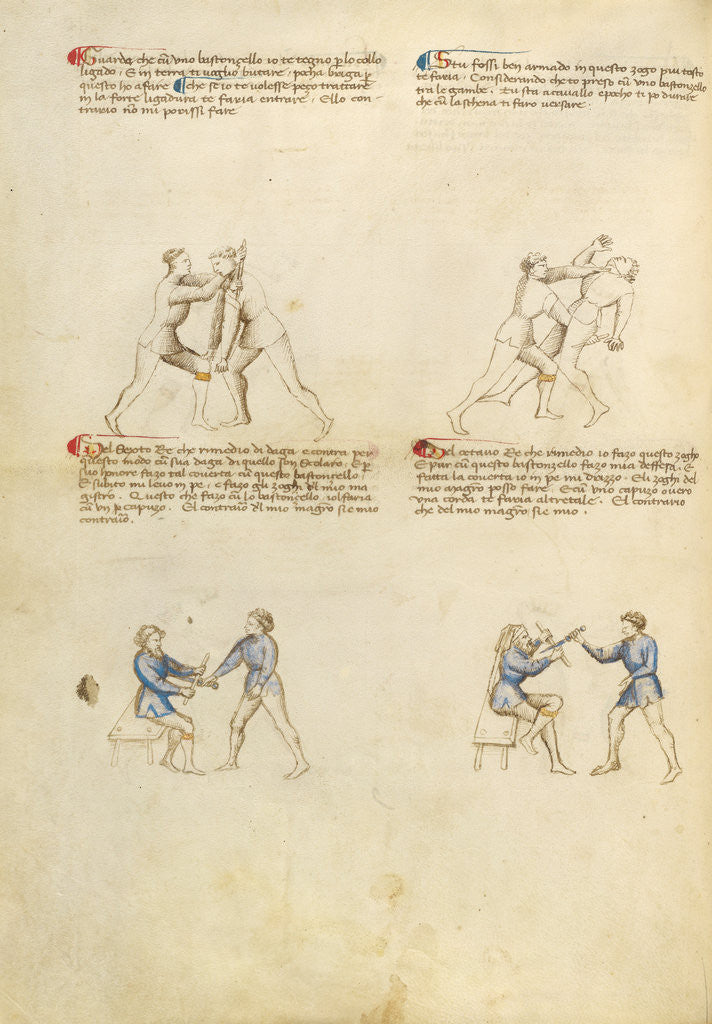 Guarda che cu uno bastoncello io te tegno p lo collo
ligado, E in terra ti voglio butare, pocha briga p
questo ho a fare che se io te volesse peço trattare
in la forte ligadura te faria entrare, Ello con
trario no mi porissi fare
Stu fossi ben armado in questo zogo piu tosto
te faria, Considerando che to preso cu uno bastonzello
tra le gambe. Tu sta a cavallo e pocho ti po durare
che cu la schena ti faro versare.
Del Sexto Re che rimedio di daga e contra per
questo modo cu sua daga di quello son Scolaro, E p
suo honore fazo tal coverta cu questo bastoncello,
E subito mi levo in pe, e fazo gli zoghi dl mio ma
gistro. Questo che fazo cu lo bastoncello, io l faria
cu un capuzo. El contraio dl mio magro si e mio
contraio.
Del octavo Re che rimedio io fazo questo zogho
E pur cu questo bastonzello fazo mia deffesa. E
fatta la coverta io in pe mi drizzo. E li zoghi del
mio magro posso fare. E cu uno capuzo overo
una corda te faria altretale. El contrario
che del mio magro si e mio.